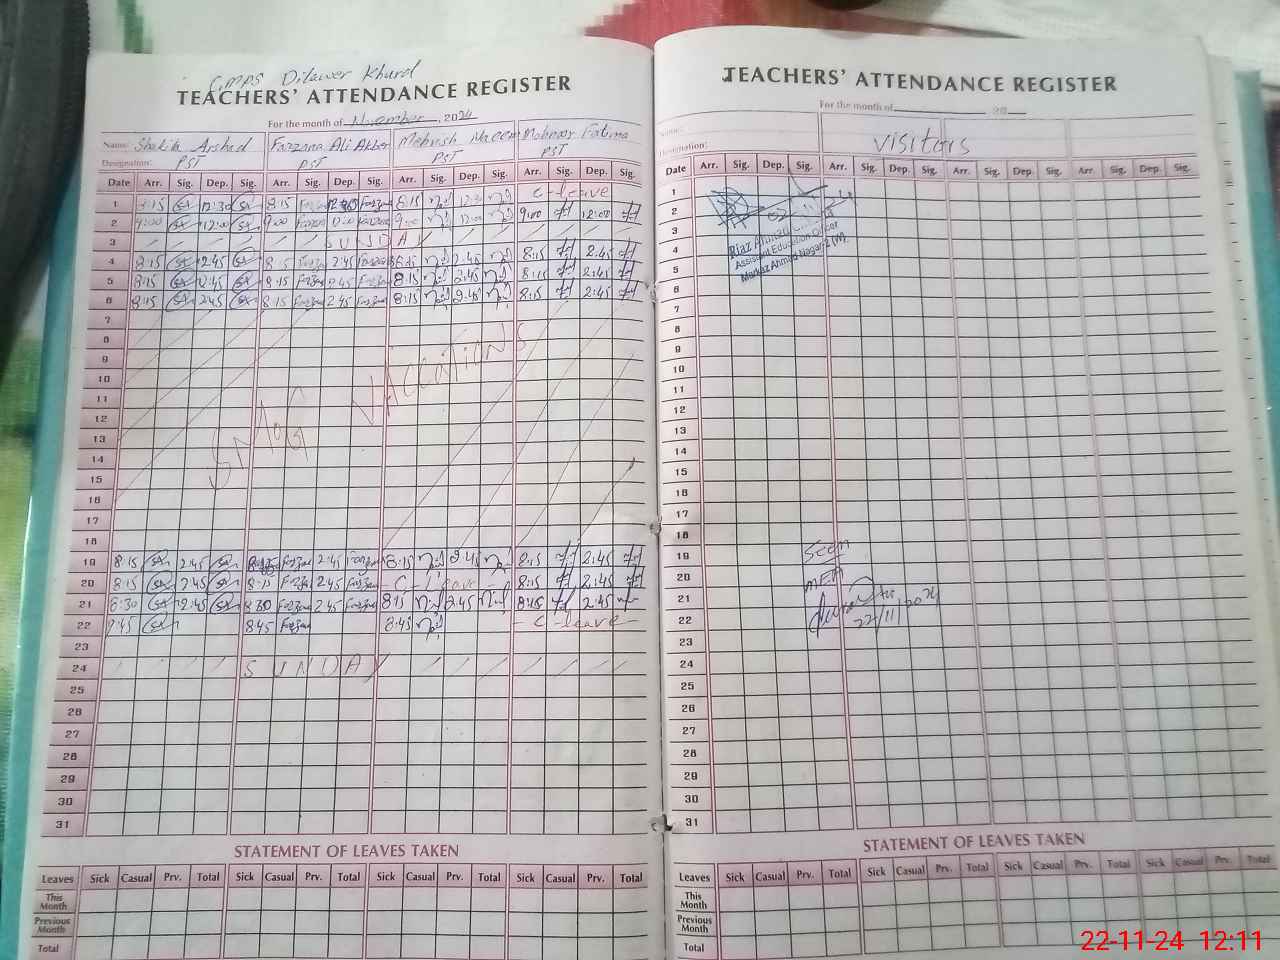 G.MPS Dilawer Khurd
TEACHERS' ATTENDANCE REGISTER
For the month of November, 2024
Name: Shakila Arshad Farzana Ali Akber Mehwish Naeem Mahnoor Fatima
Designation: PST PST PST PST
Date Arr. Sig. Dep. Sig. Arr. Sig. Dep. Sig. Arr. Sig. Dep. Sig. Arr. Sig. Dep. Sig.
1 8:15 12:30 8:15 8:15 C-leave
2 9:00 12:00 9:00 12:00 9:00 12:00 9:00 12:00
3 SUNDAY
4 8:15 2:45 8:15 2:45 8:15 2:45 8:15 2:45
5 8:15 2:45 8:15 2:45 8:15 2:45 8:15 2:45
6 8:15 2:45 8:15 2:45 8:15 2:45 8:15 2:45
7
8
9
10
11
12
13
14
15
16
17
18
SMOG VACCATIONS
19 8:15 2:45 2:45 8:15 2:45 8:15 2:45
20 8:15 2:45 8:15 2:45 -C-leave- 8:15 2:45
21 8:30 2:45 8:30 2:45 8:15 2:45 8:15 2:45
22 7:45 8:45 8:45 -C-leave-
23
24 SUNDAY
25
26
27
28
29
30
31
STATEMENT OF LEAVES TAKEN
Leaves Sick Casual Prv. Total Sick Casual Prv. Total Sick Casual Prv. Total Sick Casual Prv. Total
This Month
Previous Month
Total
TEACHERS' ATTENDANCE REGISTER
For the month of 20
Name:
Designation: Visitors
Date Arr. Sig. Dep. Sig. Arr. Sig. Dep. Sig. Arr. Sig. Dep. Sig. Arr. Sig. Dep. Sig.
1
2
3
4
5
6
7
8
9
10
11
12
13
14
15
16
17
18
19
20
21
22
23
24
25
26
27
28
29
30
31
Riaz Ahmad
Assistant Education Officer
Markaz Ahmad Nagar-2 (M)
Seen
MEA
22/11/2024
STATEMENT OF LEAVES TAKEN
Leaves Sick Casual Prv. Total Sick Casual Prv. Total Sick Casual Prv. Total Sick Casual Prv. Total
This Month
Previous Month
Total
22-11-24 12:11